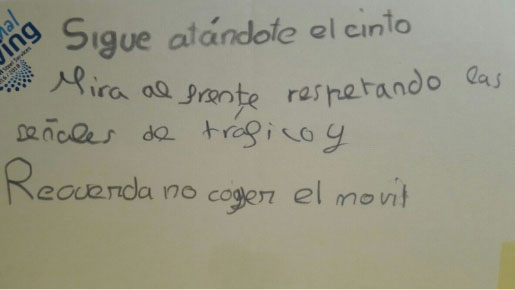 Sigue atándote el cinto
Mira al frente respetando las
señales de tráfico y
Recuerda no coger el movil